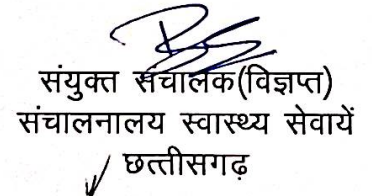 संयुक्त संचालक(विज्ञप्त)
संचालनालय स्वास्थ्य सेवायें
छत्तीसगढ़